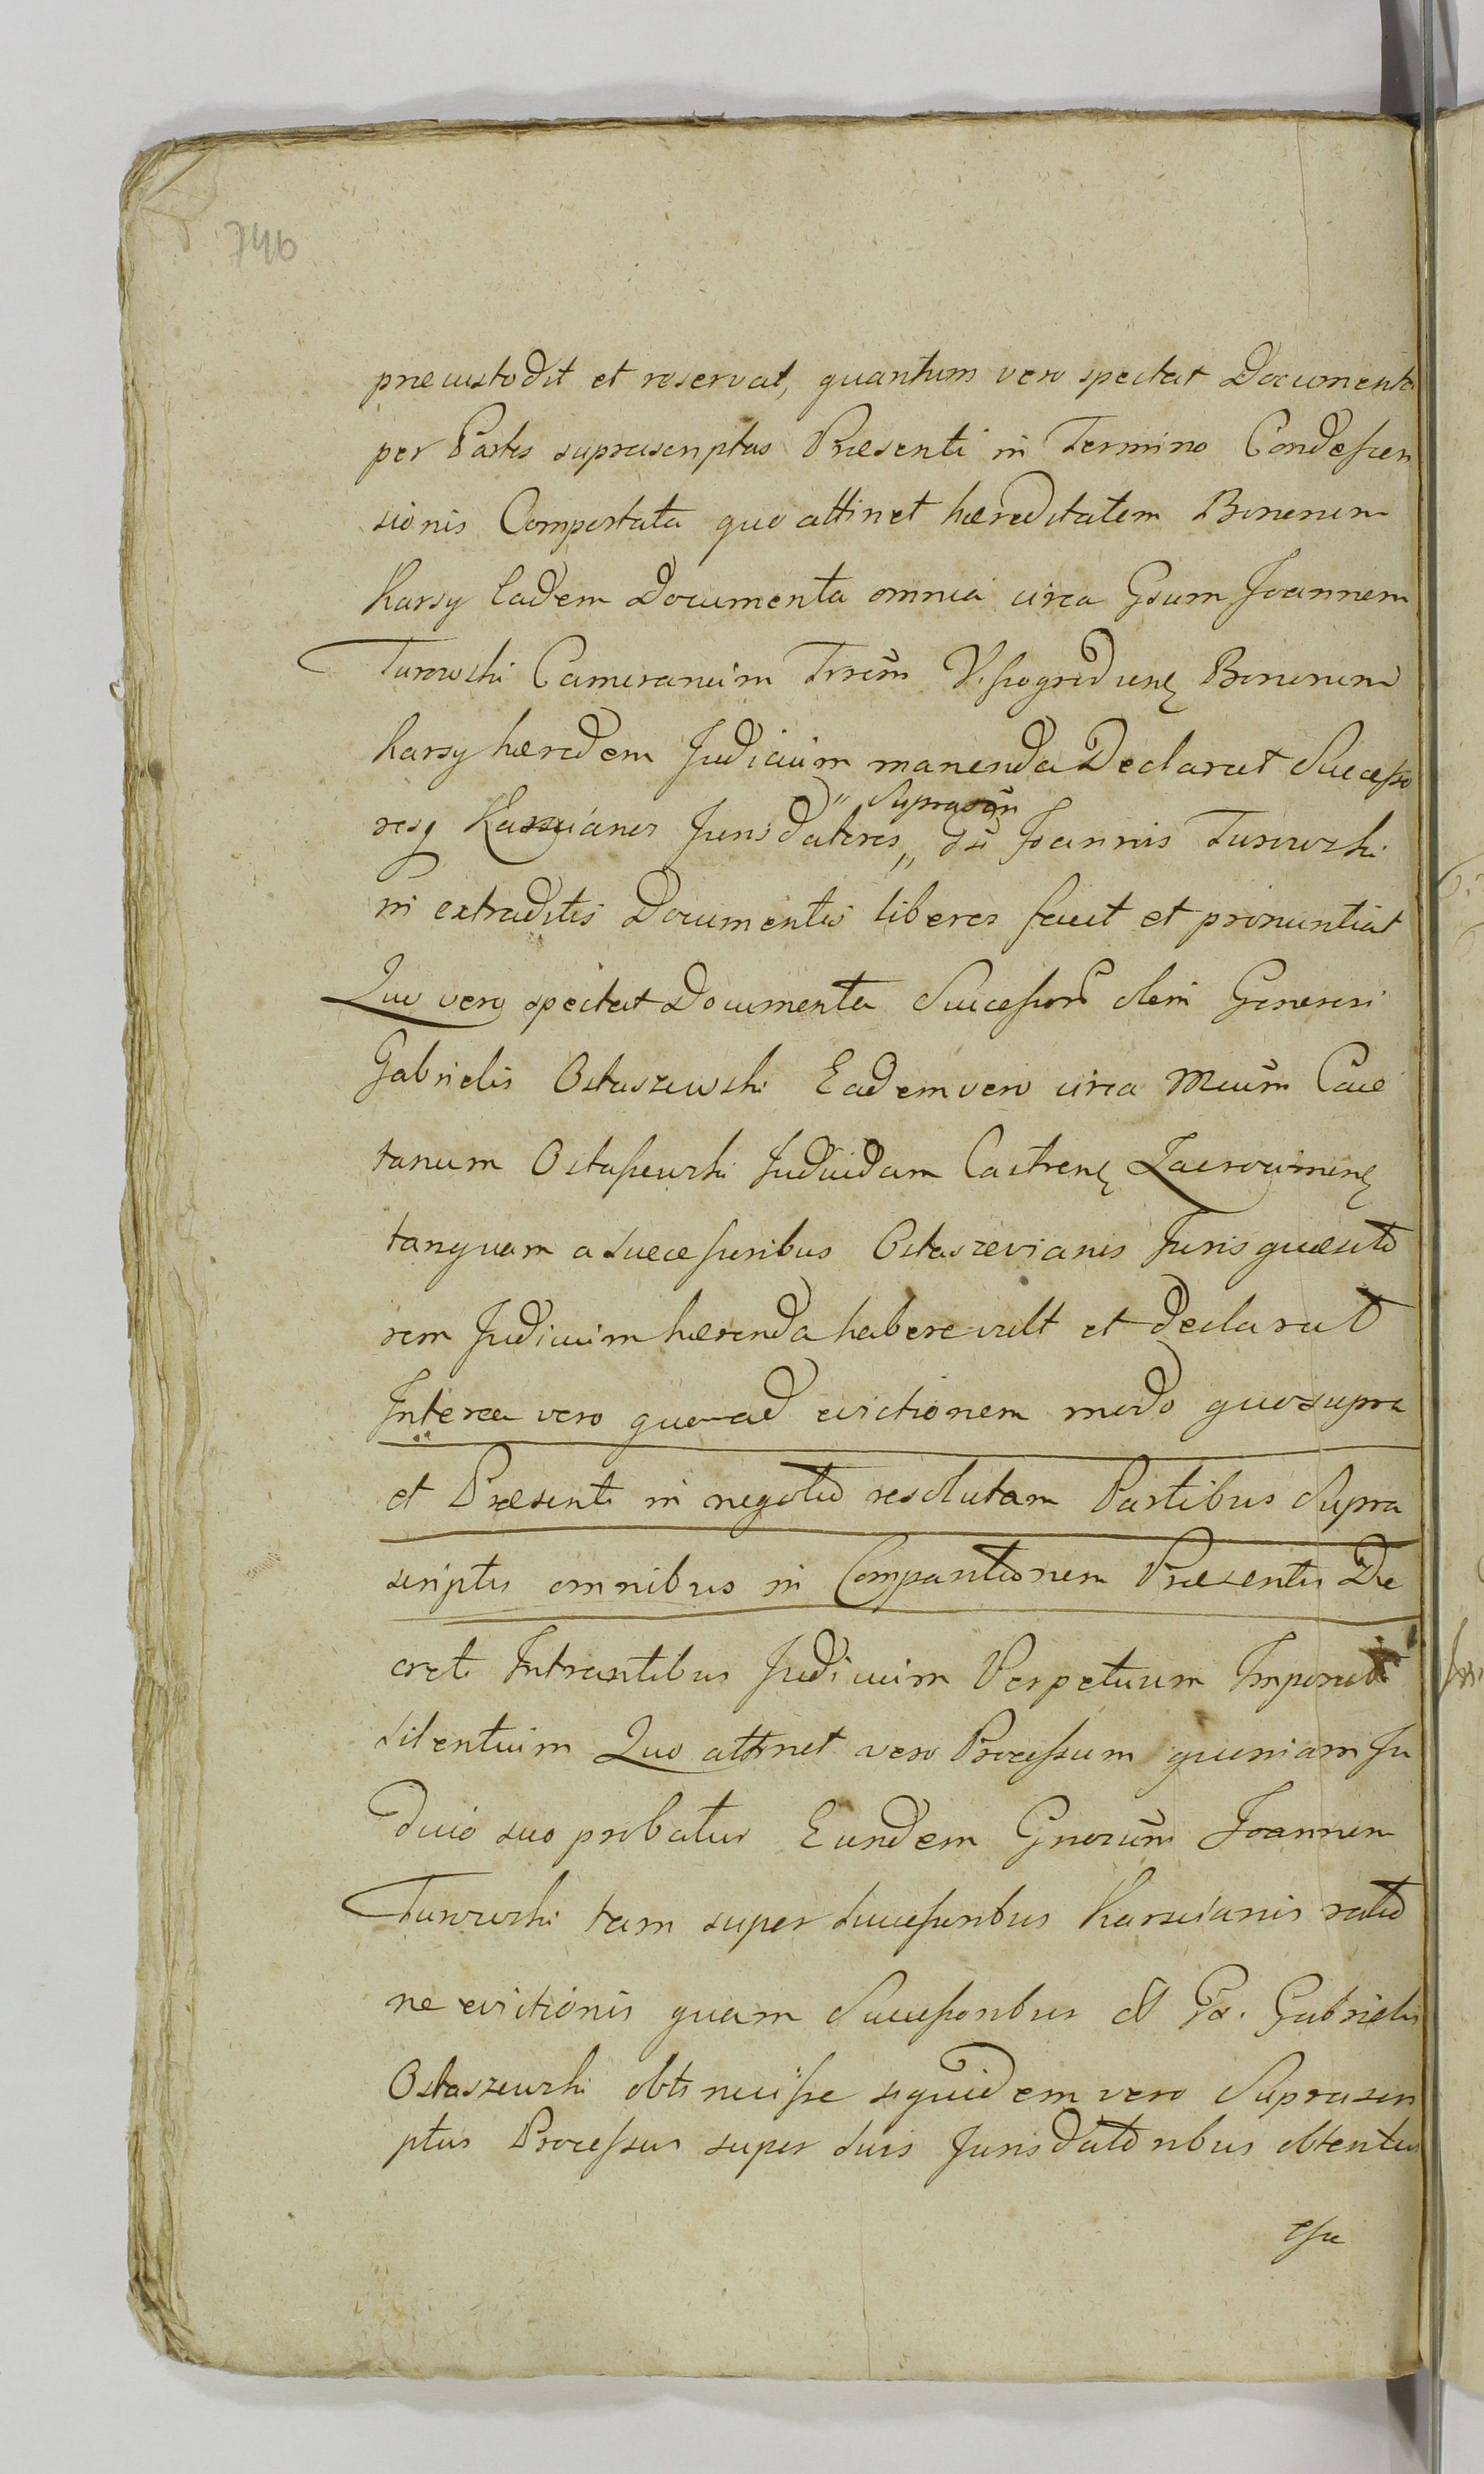 746
præcustodit et reservat, quantum vero spectat Documenta
per Partes suprascriptas Præsenti in Termino Condescen
sionis Comportata quo attinet hæreditatem Bonorum
Karsy Eadem Documenta omnia circa Gsum Joannem
Turowski Camerarium Trrēm Wissogrodien Bonorum
Karsy hæredem Judicium manenda Declarat Successo
"Suprascr̄
resq Karsyianos Jurisdatores „ Joannis Turowski
in extraditis Documentis liberos facit et pronuntiat
Quo vero spectat Documenta Successorū olim Generosi
Gabrielis Ostaszewski Eadem vero circa Mcūm Caie
tanum Ostassewski Judicidam Castrens Zacrocimens
tanquam a Successoribus Ostaszevianis Jurisquæsito
rem Judicium hærenda habere vult et declarat
Interea vero quo ad evictionem modo quo supra
et Præsenti in negotio resolutam Partibus Supra
scriptis omnibus in Comparitionem Præsentis De
creti Intrantibus Judicium Perpetuum Imponit
silentium Quo attinet vero Processum quoniam Ju
dicio suo probatur Eundem Gnorūm Joannem
Turowski tam super Successoribus Karscianis ratio
ne evictionis quam Successoribus Gabrielis
Ostaszewski obtinuisse siquidem vero Suprascri
ptus Processus super suis Jurisdatoribus obtentus
esse